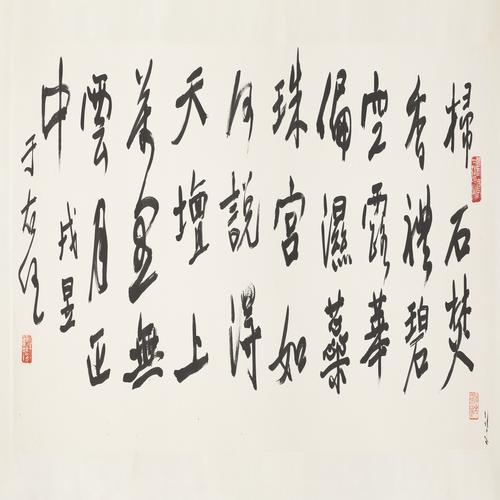 掃石焚
香禮碧
空露華
偏濕蘂
珠宮如
何說得
天壇上
萬里無
雲月正
中
戎昱
于右任